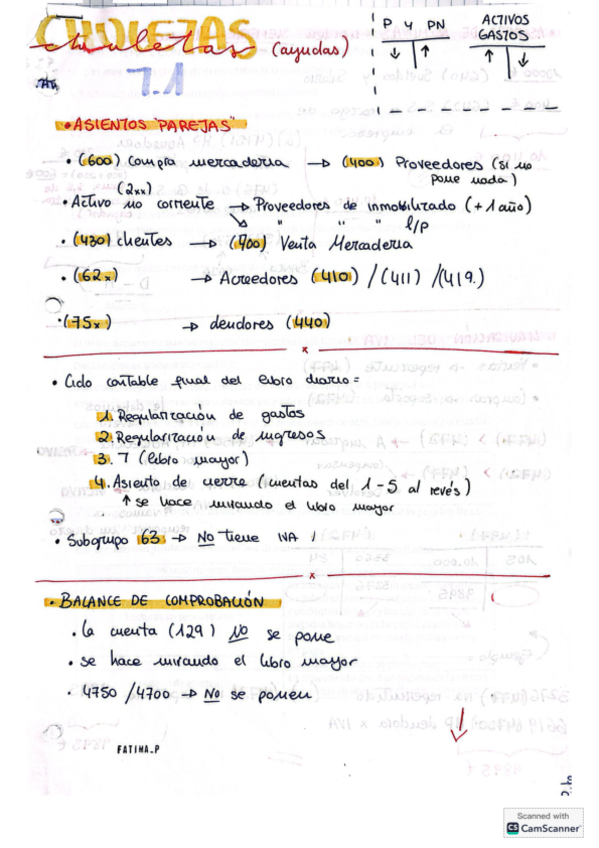 CHULETAS
chuletas (ayudas)
7.1
P y PN
↓ ↑
ACTIVOS
GASTOS
↑ ↓
• ASIENTOS "PAREJAS"
• (600) Compra mercaderia → (400) Proveedores (si no
pone nada)
(2xx)
• Activo no corriente → Proveedores de inmobilizado (+1 año)
↘ " " " l/p
• (430) clientes → (700) Venta Mercaderia
• (62x) → Acreedores (410) / (411) / (419.)
• (75x) → deudores (440)
x
• Ciclo contable final del libro diario =
1. Regularización de gastos
2. Regularización de ingresos
3. T (libro mayor)
4. Asiento de cierre (cuentas del 1-5 al revés)
↑ se hace mirando el libro mayor
• Subgrupo 63 → NO tiene IVA !
x
• BALANCE DE COMPROBACIÓN
• la cuenta (129) NO se pone
• se hace mirando el libro mayor
• 4750 / 4700 → NO se ponen
FATIMA.P
Scanned with
CS CamScanner